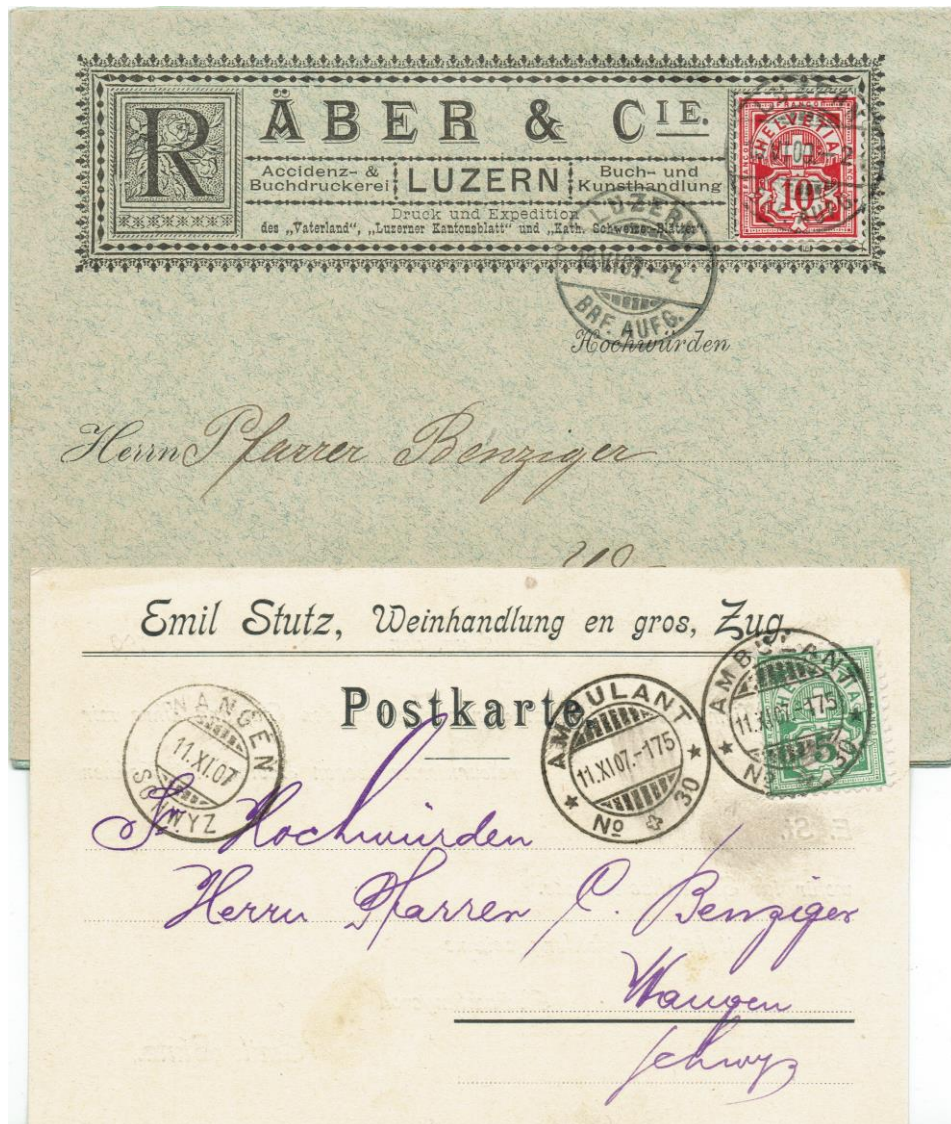 RÄBER & CIE.
Accidenz- & Buchdruckerei
LUZERN
Buch- und Kunsthandlung
Druck und Expedition
des „Vaterland“, „Luzerner Kantonsblatt“ und „Kath. Schweizer-Blätter“.
FRANCO
HELVETIA
10
LUZERN
BRF. AUFG.
Hochwürden
Herrn Pfarrer Benziger
Emil Stutz, Weinhandlung en gros, Zug.
Postkarte.
WANGEN
11.XI.07
SCHWYZ
AMBULANT
11.XI.07.-175
No 30
AMBULANT
11.XI.07.-175
No 30
5
Hochwürden
Herrn Pfarrer C. Benziger
Wangen
Schwyz